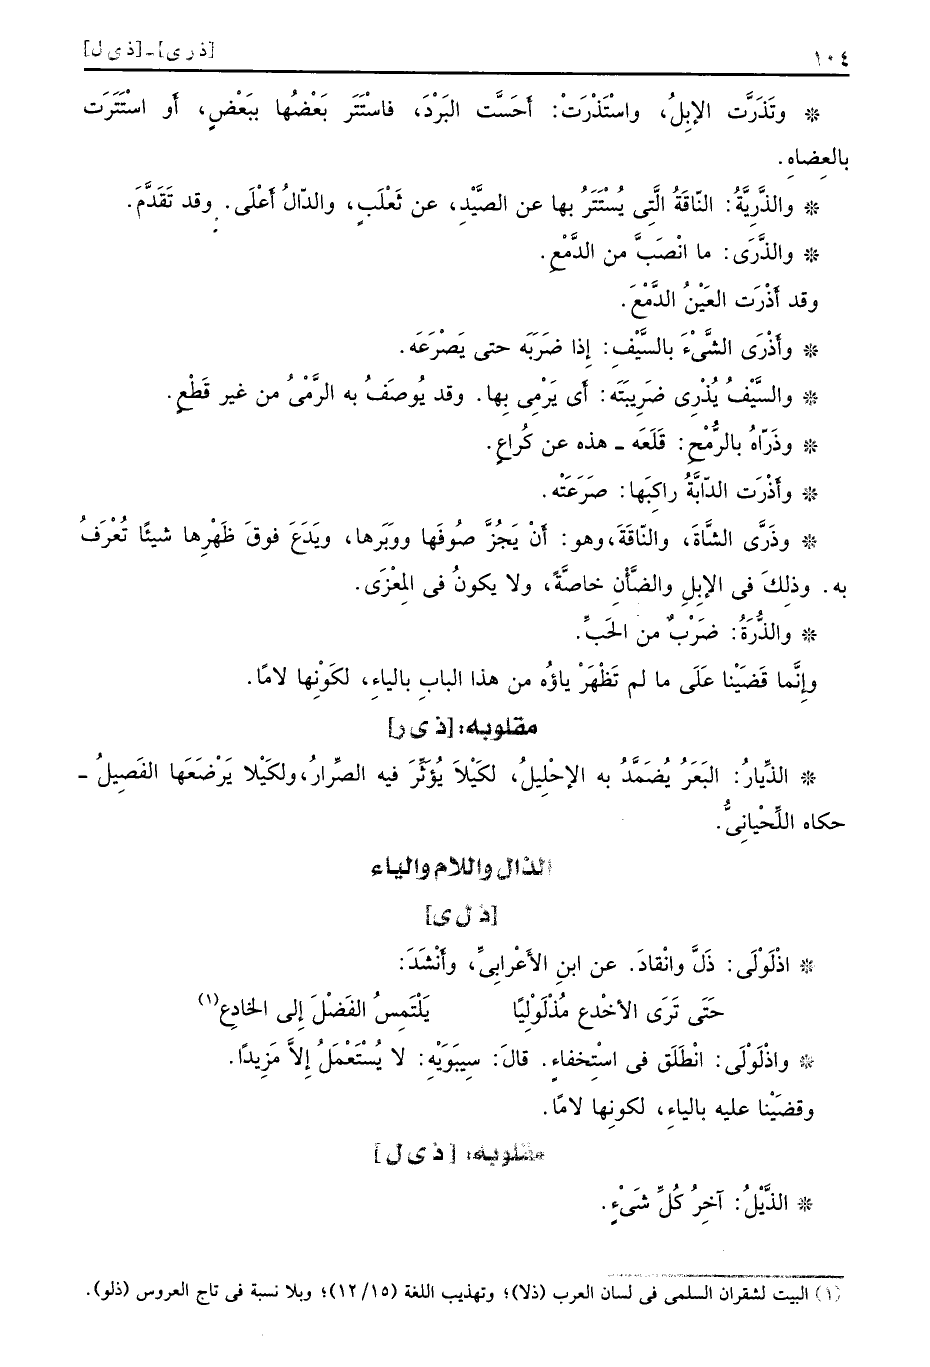 ١٠٤ [ذ ر ى] ـ [ذ ى ل]
* وتَذَرَّت الإبِلُ، واسْتَذْرَتْ: أحَسَّت البَرْدَ، فاسْتَتَر بَعْضُها ببَعْضٍ، أو اسْتَتَرَت
بالعِضاه.
* والذَّرِيَّةُ: النّاقَةُ الَّتِى يُسْتَتَرُ بها عن الصَّيْدِ، عن ثَعْلَبٍ، والدّالُ أعْلَى. وقد تَقَدَّمَ.
* والذَّرَى: ما انْصَبَّ من الدَّمْعِ.
وقد أذْرَت العَيْنُ الدَّمْعَ.
* وأَذْرَى الشَّىْءَ بالسَّيْفِ: إذا ضَرَبَه حتى يَصْرَعَه.
* والسَّيْفُ يُذْرِى ضَرِيبَتَه: أى يَرْمِى بها. وقد يُوصَفُ به الرَّمْىُ من غير قَطْعٍ.
* وذَرّاهُ بالرُّمْحِ: قَلَعَه ـ هذه عن كُراعٍ.
* وأَذْرَت الدّابَّةُ راكِبَها: صَرَعَتْه.
* وذَرَّى الشَّاةَ، والنّاقَةَ،وهو: أنْ يَجُزَّ صُوفَها ووَبَرها، ويَدَعَ فوقَ ظَهْرِها شيئًا تُعْرَفُ
به. وذلِكَ فى الإبِلِ والضَّأْنِ خاصَّةً، ولا يكونُ فى المِعْزَى.
* والذُّرَةُ: ضَرْبٌ من الحَبِّ.
وإنَّما قَضَيْنا عَلَى ما لم تَظْهَرْ ياؤُه من هذا البابِ بالياءِ، لكَوْنِها لامًا.
مقلوبه: [ذ ى ر]
* الذِّيارُ: البَعَرُ يُضَمَّدُ به الإحْلِيلُ، لكَيْلاَ يُؤَثِّرَ فيه الصِّرارُ،ولكَيْلا يَرْضَعَها الفَصِيلُ ـ
حكاه اللِّحْيانِىُّ.
الذال واللام والياء
[ذ ل ى]
* اذْلَوْلَى: ذَلَّ وانْقادَ. عن ابنِ الأعْرابِىِّ، وأنْشَدَ:
حَتى تَرَى الأخْدع مُذْلَوْلِيًا يَلْتَمِسُ الفَضْلَ إلى الخادِعِ(١)
* واذْلَوْلَى: انْطَلَق فى اسْتِخفاءٍ. قالَ: سِيبَوَيْهِ: لا يُسْتَعْمَلُ إلاَّ مَزِيدًا.
وقضَيْنا عليه بالياءِ، لكونِها لامًا.
مقلوبه: [ذ ى ل]
* الذَّيْلُ: آخِرُ كُلِّ شَىْءٍ.
(١) البيت لشقران السلمى فى لسان العرب (ذلا)؛ وتهذيب اللغة (١٢/١٥)؛ وبلا نسبة فى تاج العروس (ذلو).